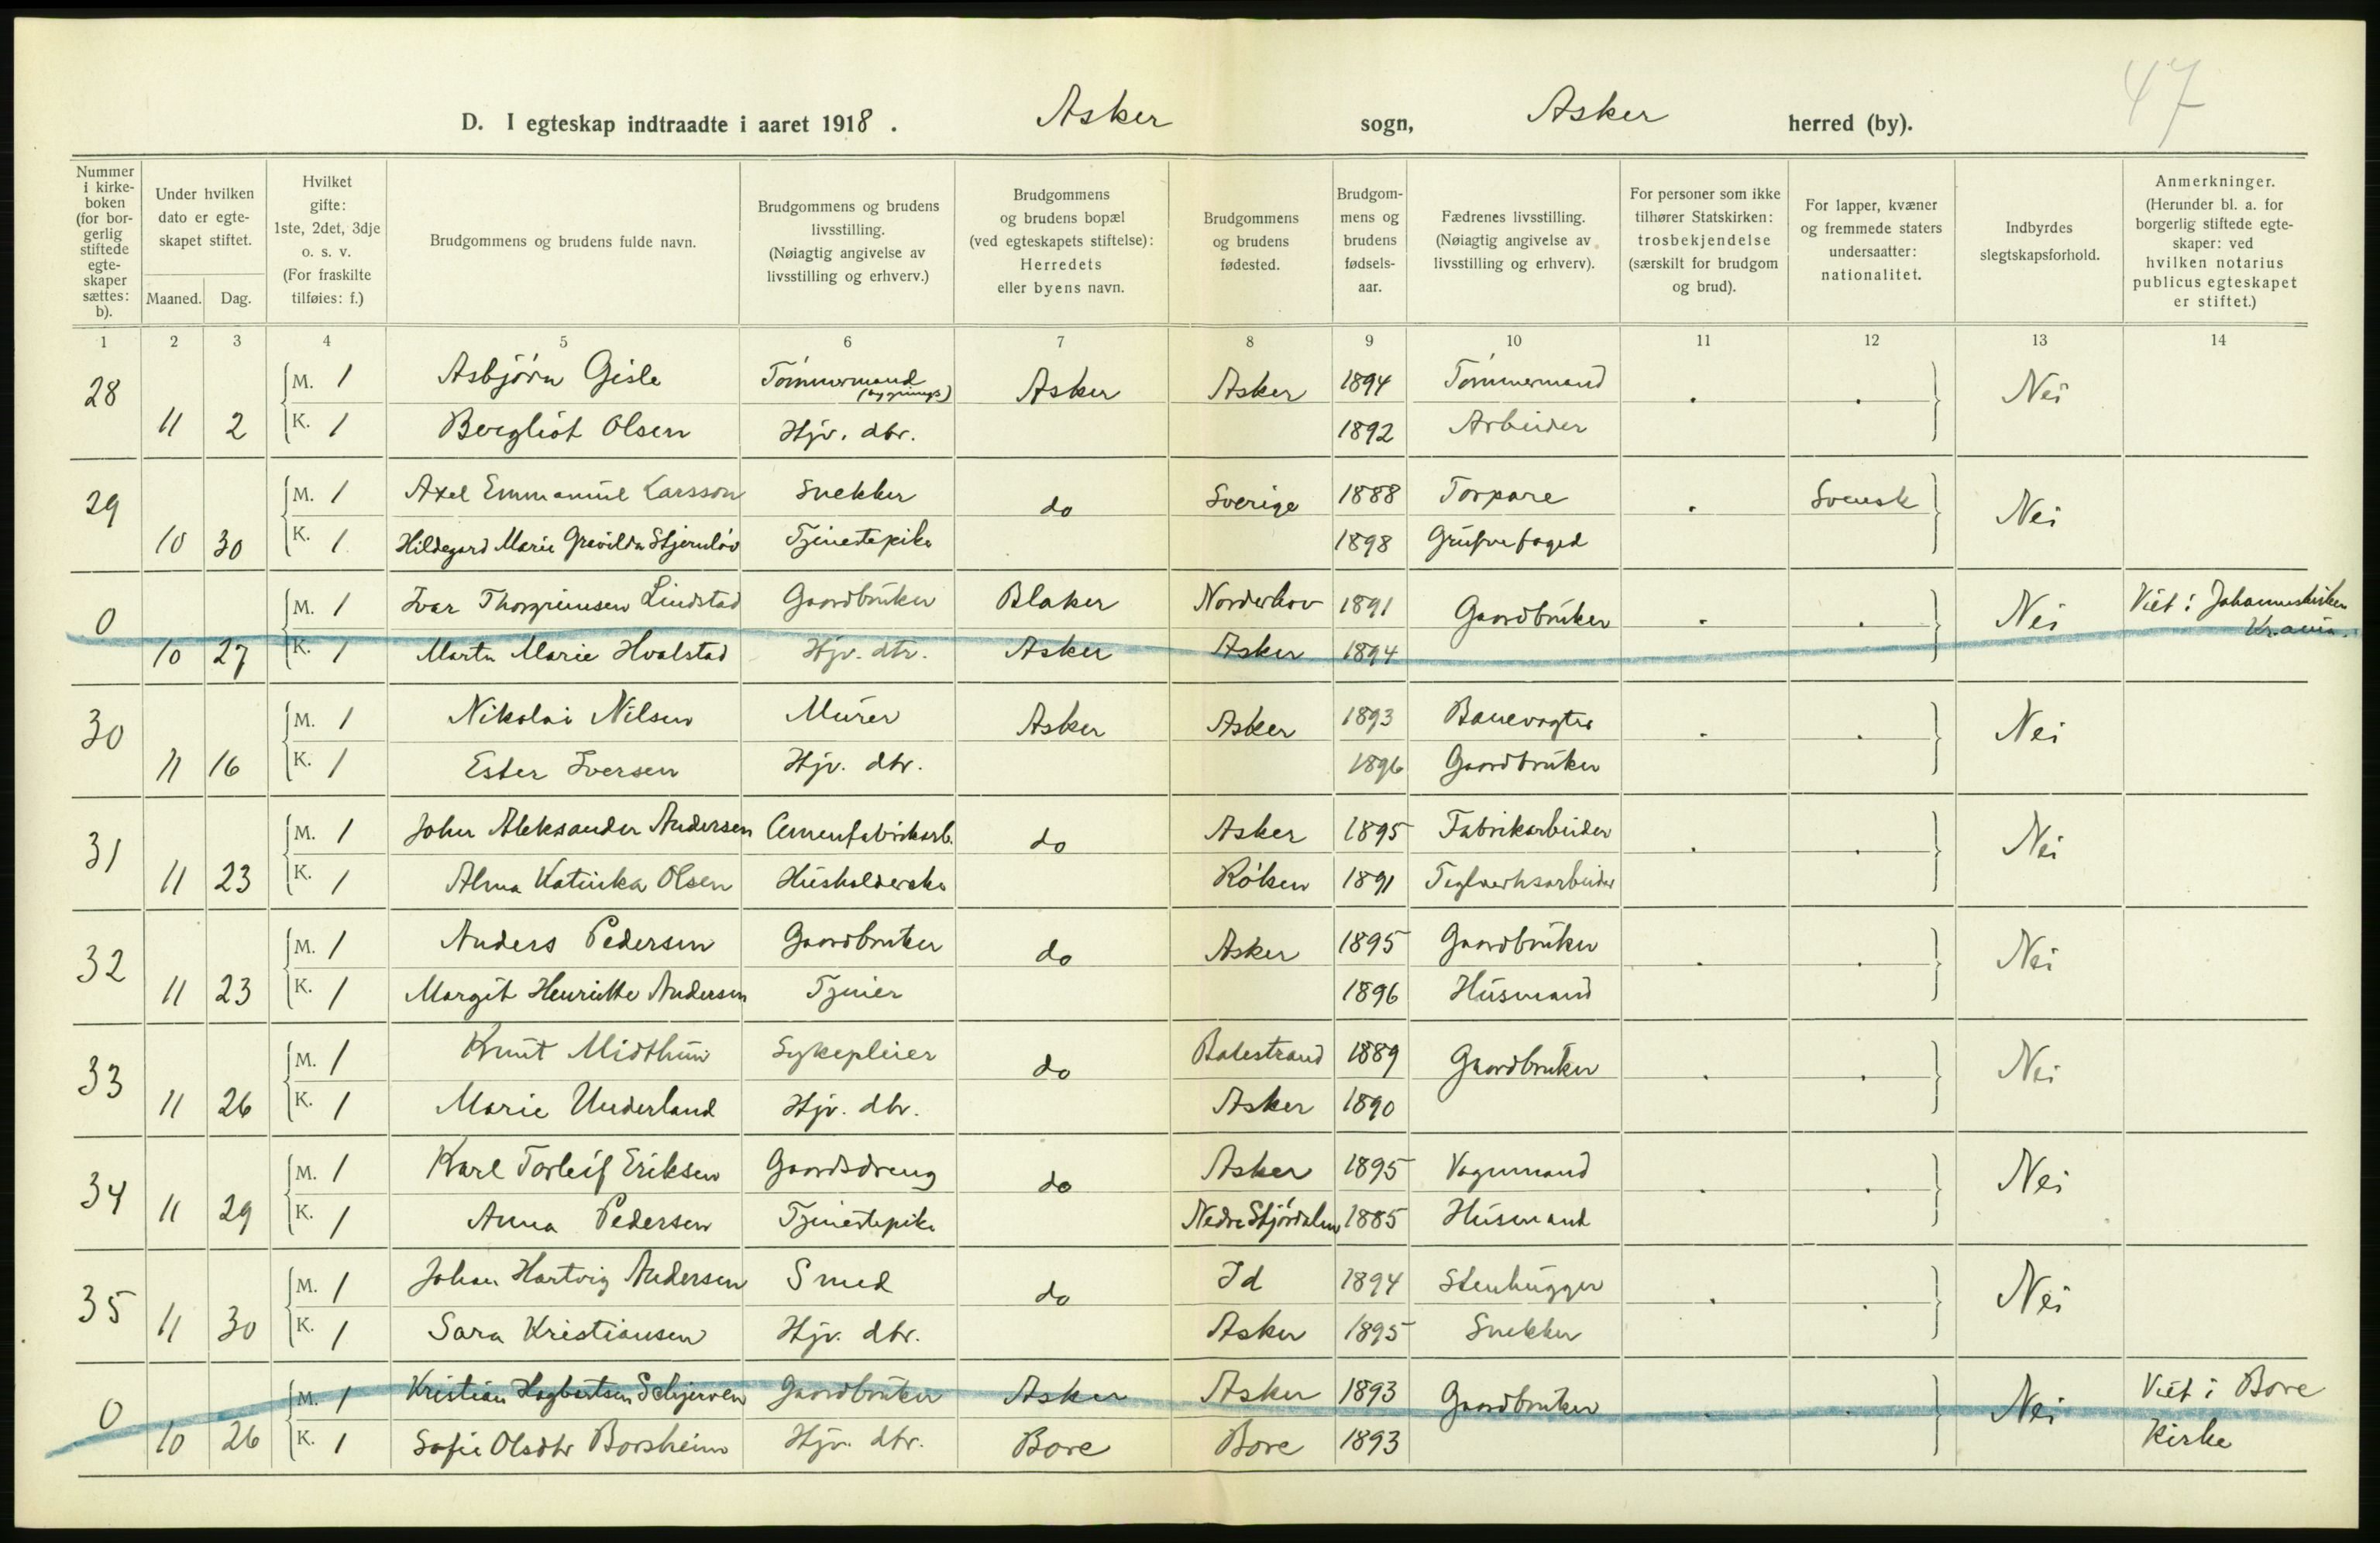 47
D. I egteskap indtraadte i aaret 1918. Asker sogn, Asker herred (by).
Nummer i kirke-boken (for bor-gerlig stiftede egte-skaper sættes: b).
Under hvilken dato er egte-skapet stiftet.
Maaned. Dag.
Hvilket gifte: 1ste, 2det, 3dje o. s. v. (For fraskilte tilføies: f.)
Brudgommens og brudens fulde navn.
Brudgommens og brudens livsstilling. (Nøiagtig angivelse av livsstilling og erhverv.)
Brudgommens og brudens bopæl (ved egteskapets stiftelse): Herredets eller byens navn.
Brudgommens og brudens fødested.
Brudgom-mens og brudens fødsels-aar.
Fædrenes livsstilling. (Nøiagtig angivelse av livsstilling og erhverv).
For personer som ikke tilhører Statskirken: trosbekjendelse (særskilt for brudgom og brud).
For lapper, kvæner og fremmede staters undersaatter: nationalitet.
Indbyrdes slegtskapsforhold.
Anmerkninger. (Herunder bl. a. for borgerlig stiftede egte-skaper: ved hvilken notarius publicus egteskapet er stiftet.)
1 2 3 4 5 6 7 8 9 10 11 12 13 14
28 M. 1 Asbjørn Gisle Tømmermand (bygnings) Asker Asker 1894 Tømmermand . . Nei
11 2 K. 1 Bergliot Olsen Hjv. dtr. 1892 Arbeider
29 M. 1 Axel Emmanuel Larsson Snekker do Sverige 1888 Torpare . Svensk Nei
10 30 K. 1 Hildegard Marie Stjernløv Tjenestepike 1898 Grufvefoged
0 M. 1 Ivar Thorgrimsen Lindstad Gaardbruker Blaker Norderhov 1891 Gaardbruker . . Nei Viet i Johanneskirken Kr.ania.
10 27 K. 1 Marta Marie Hvalstad Hjv. dtr. Asker Asker 1894
30 M. 1 Nikolai Nilsen Murer Asker Asker 1893 Banevogter . . Nei
11 16 K. 1 Ester Iversen Hjv. dtr. 1896 Gaardbruker
31 M. 1 John Aleksander Andersen Cemenfabrikarb. do Asker 1895 Fabrikarbeider . . Nei
11 23 K. 1 Alma Katinka Olsen Husholderske Røken 1891 Teglverksarbeider
32 M. 1 Anders Pedersen Gaardbruker do Asker 1895 Gaardbruker . . Nei
11 23 K. 1 Margit Henriette Andersen Tjener 1896 Husmand
33 M. 1 Knut Midthun Sykepleier do Balestrand 1889 Gaardbruker . . Nei
11 26 K. 1 Marie Underland Hjv. dtr. Asker 1890
34 M. 1 Karl Torleif Eriksen Gaardsdreng do Asker 1895 Vognmand . . Nei
11 29 K. 1 Anna Pedersen Tjenestepike Nedre Stjørdalen 1885 Husmand
35 M. 1 Johan Hartvig Andersen Smed do Id 1894 Stenhugger . . Nei
11 30 K. 1 Sara Kristiansen Hjv. dtr. Asker 1895 Snekker
0 M. 1 Kristian Hagbartsen Schjerven Gaardbruker Asker Asker 1893 Gaardbruker . . Nei Viet i Bore
10 26 K. 1 Sofie Olsdtr Borsheim Hjv. dtr. Bore Bore 1893 Kirke